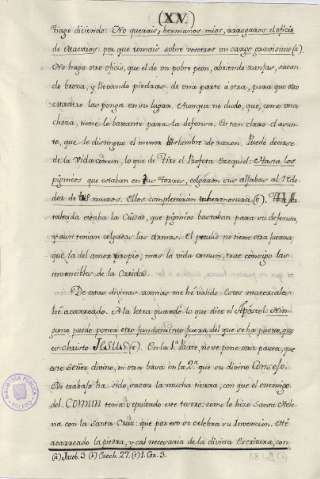 (XV.)
hago diciendo: No querais, hermanos mios, arrogaros el oficio
de Maestros: porque tomais sobre vosotros un cargo gravisimo (a).
No hago otro oficio, que el de un pobre peon, abriendo zanjas, sacan
do tierra, y llevando piedras de una parte á otra, para que otro
Maestro las ponga en su lugar. Aunque no dudo, que, como una
choza, tiene lo bastante para la defensa. Es tan claro el asun
to, que le distingue el menor de razon. Puede decirse
de la Vida comun, lo que de Tiro el Profeta Ezequiel: Hasta los
pigmeos que estaban en sus Torres, colgaron sus aljabas al rede
dor de tus muros: Ellos completaron tu hermosura (b).
estaba la Ciudad, que pigmeos bastaban para su defensa,
y aun tenian colgadas las armas. El peculio no tiene otra fuerza
que la del amor propio; mas la vida comun, trae consigo las
invencibles de la Caridad.
De estas divinas armas me hé valido. Estos materiales
hé acarreado. A la letra guardo lo que dice el Apóstol: Nin
guno puede poner otro fundamento fuera del que se ha puesto, que
es Christo JESUS (c). En la 1ª Parte, no se pone otra piedra, que
este divino, ni otra basa en la 2ª que su divino Consejo.
Mi trabajo há sido, sacar la mucha tierra, con que el enemigo
del COMUN tenia sepultado este tesoro: como lo hizo Santa Hele
na con la Santa Cruz: que por eso se celebra su Invencion. Hé
acarreado la piedra, y cal necesaria de la divina Escritura, con
(a) Jacob. 3 (b) Ezech. 27. (c) 1. Cor. 3.